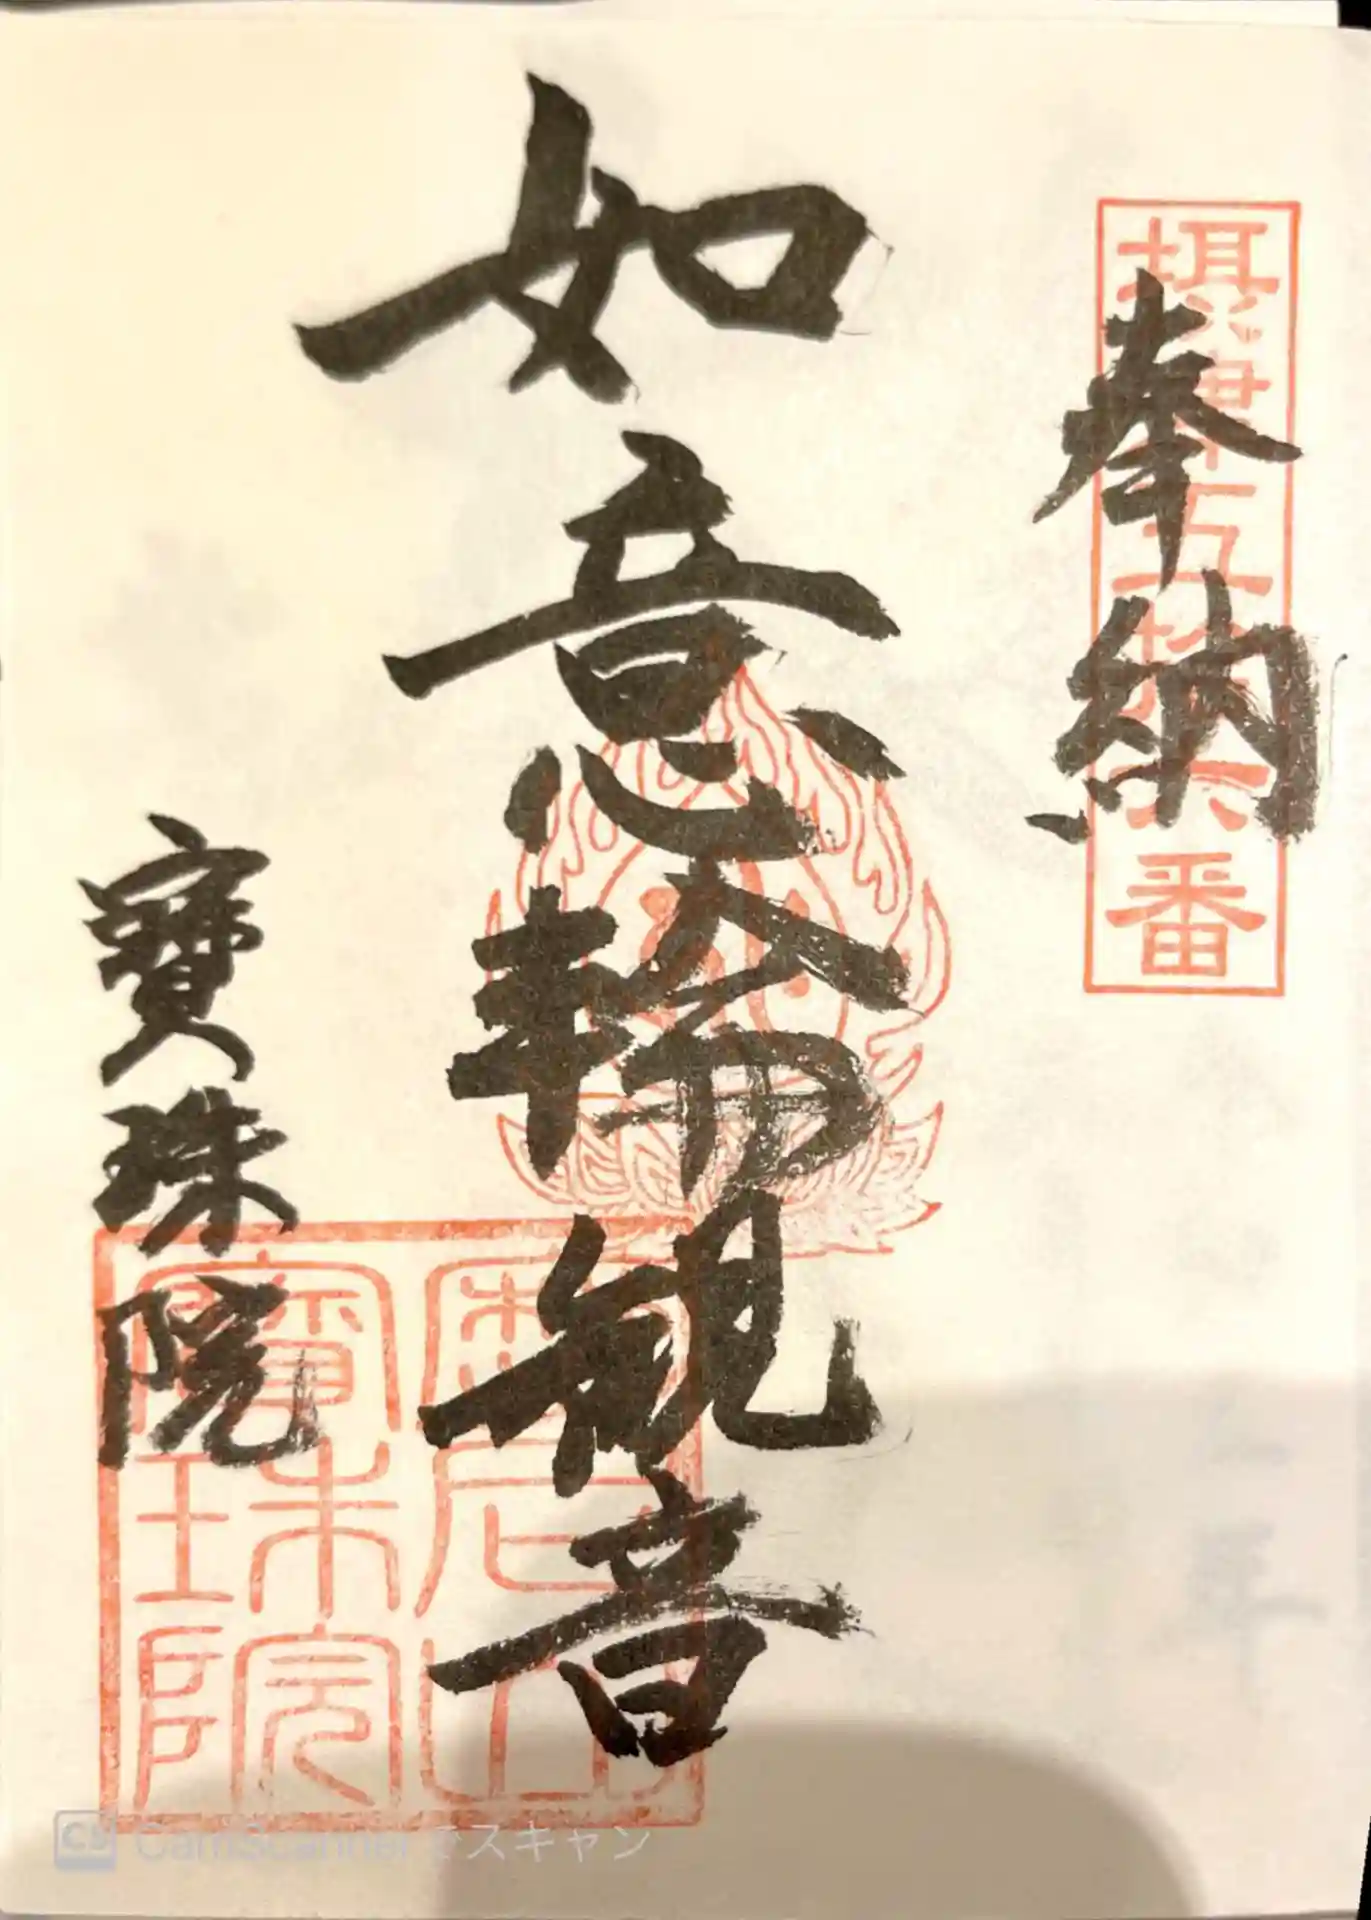 奉納
摂津第五拾六番
如意輪観音
寶珠院
摩尼山
寶珠院
CamScannerでスキャン